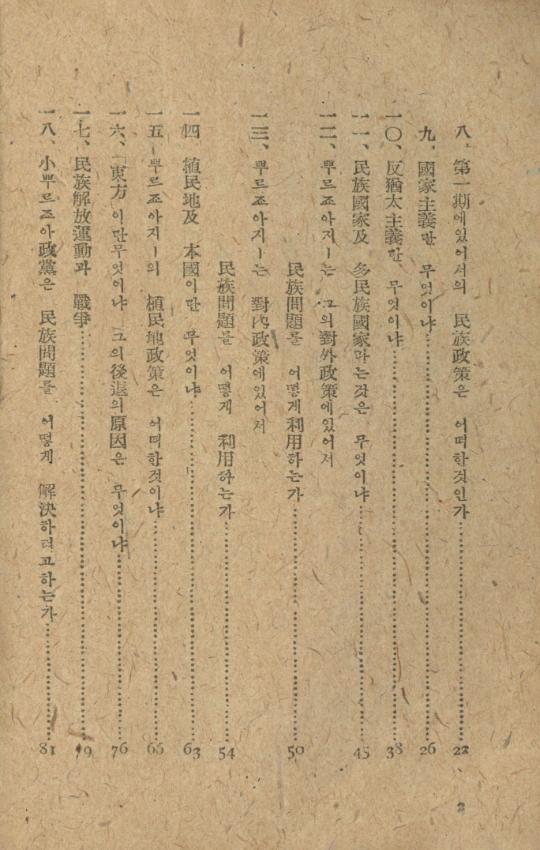 八、第一期에있어서의 民族政策은 어떠한것인가……22
九、國家主義란 무엇이냐……26
一〇、反猶太主義란 무엇이냐……38
一一、民族國家及 多民族國家라는것은 무엇이냐……45
一二、뿌르죠아지ー는 그의對外政策에있어서
民族問題를 어떻게利用하는가……50
一三、뿌르죠아지ー는 對內政策에있어서
民族問題를 어떻게 利用하는가……54
一四 植民地及 本國이란 무엇이냐……63
一五 뿌르죠아지ー의 植民地政策은 어떠한것이냐……65
一六、「東方」이란무엇이냐 그의後退의原因은 무엇이냐……76
一七、民族解放運動과 戰爭……79
一八、小뿌르죠아政黨은 民族問題를 어떻게 解決하려고하는가……81
2